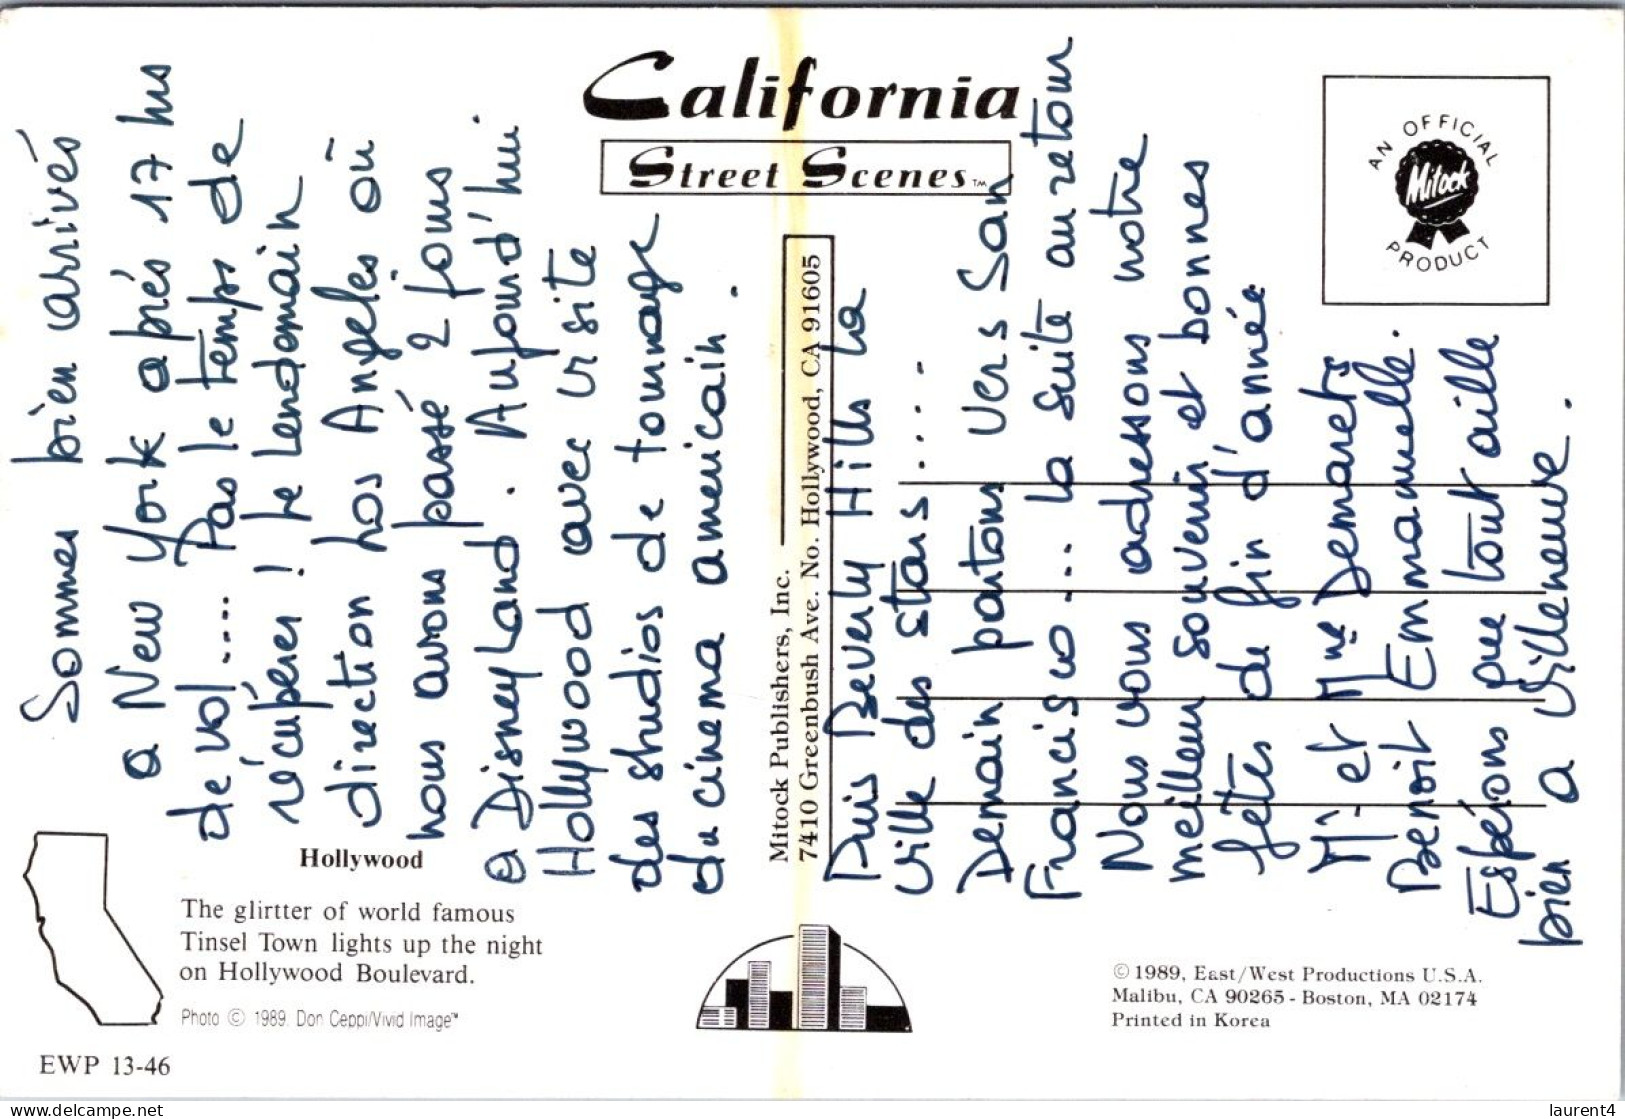 California
Street Scenes™
AN OFFICIAL
Mitock
PRODUCT
Sommes bien arrivés
a New York après 17 hrs
de vol.... Pas le temps de
récupérer ! Le Lendemain
direction Los Angeles où
nous avons passé 2 jours
a DisneyLand. Aujourd'hui
Hollywood avec visite
des studios de tournage
du cinema americain.
Mitock Publishers, Inc.
7410 Greenbush Ave. No. Hollywood, CA 91605
Puis Beverly Hills La
Ville des stars....
Demain partons vers San
Francisco... la suite au retour
Nous vous adressons notre
meilleur souvenir et bonnes
fêtes de fin d'année
Mr et Mme Demarets
Benoit Emmanuelle.
Espérons que tout aille
bien a Villeneuve.
Hollywood
The glirtter of world famous
Tinsel Town lights up the night
on Hollywood Boulevard.
Photo © 1989 Don Ceppi/Vivid Image™
EWP 13-46
© 1989, East/West Productions U.S.A.
Malibu, CA 90265 - Boston, MA 02174
Printed in Korea
delcampe.net
laurent4